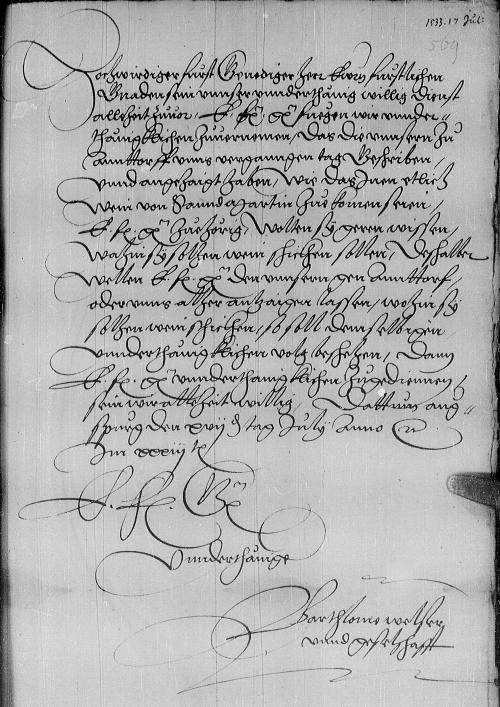 1533. 17 Jul:
509
Hochwirdiger furst Genediger herr Ewrn furstlichen
Gnaden sein vnnser vnnderthänig willig dienst
allezeit zuuor. E. fr. gn. fuegen wir vnnder-
thänigklichen zuuernemen, das die vnnsern zu
Anttorff vnns verganngen tag geschriben,
vnnd angezaigt haben, wie das Inen etlich
wein von Sannd Martin zukomen seien
E. fr. gn. zuehörig, wolten sy geren wissen,
wohin sy solhen wein schicken sollen, Deshalber
wellen E. fr. gn. den vnnsern gen Anttorf,
oder vnns alher antzaigen lassen, wohin sy
solhen wein schicken, so soll demselbigen
vnnderthänigklichen volg beschehen, Dann
E. fr. gn. vnnderthänigklichen zugediennen,
sein wir allezeit willig. Dattum aug-
spurg den xvij tag July Anno
Im xxxiij
E. fr. Gn.
Vnnderthänige
Bartholome welser
vnnd geselschafft